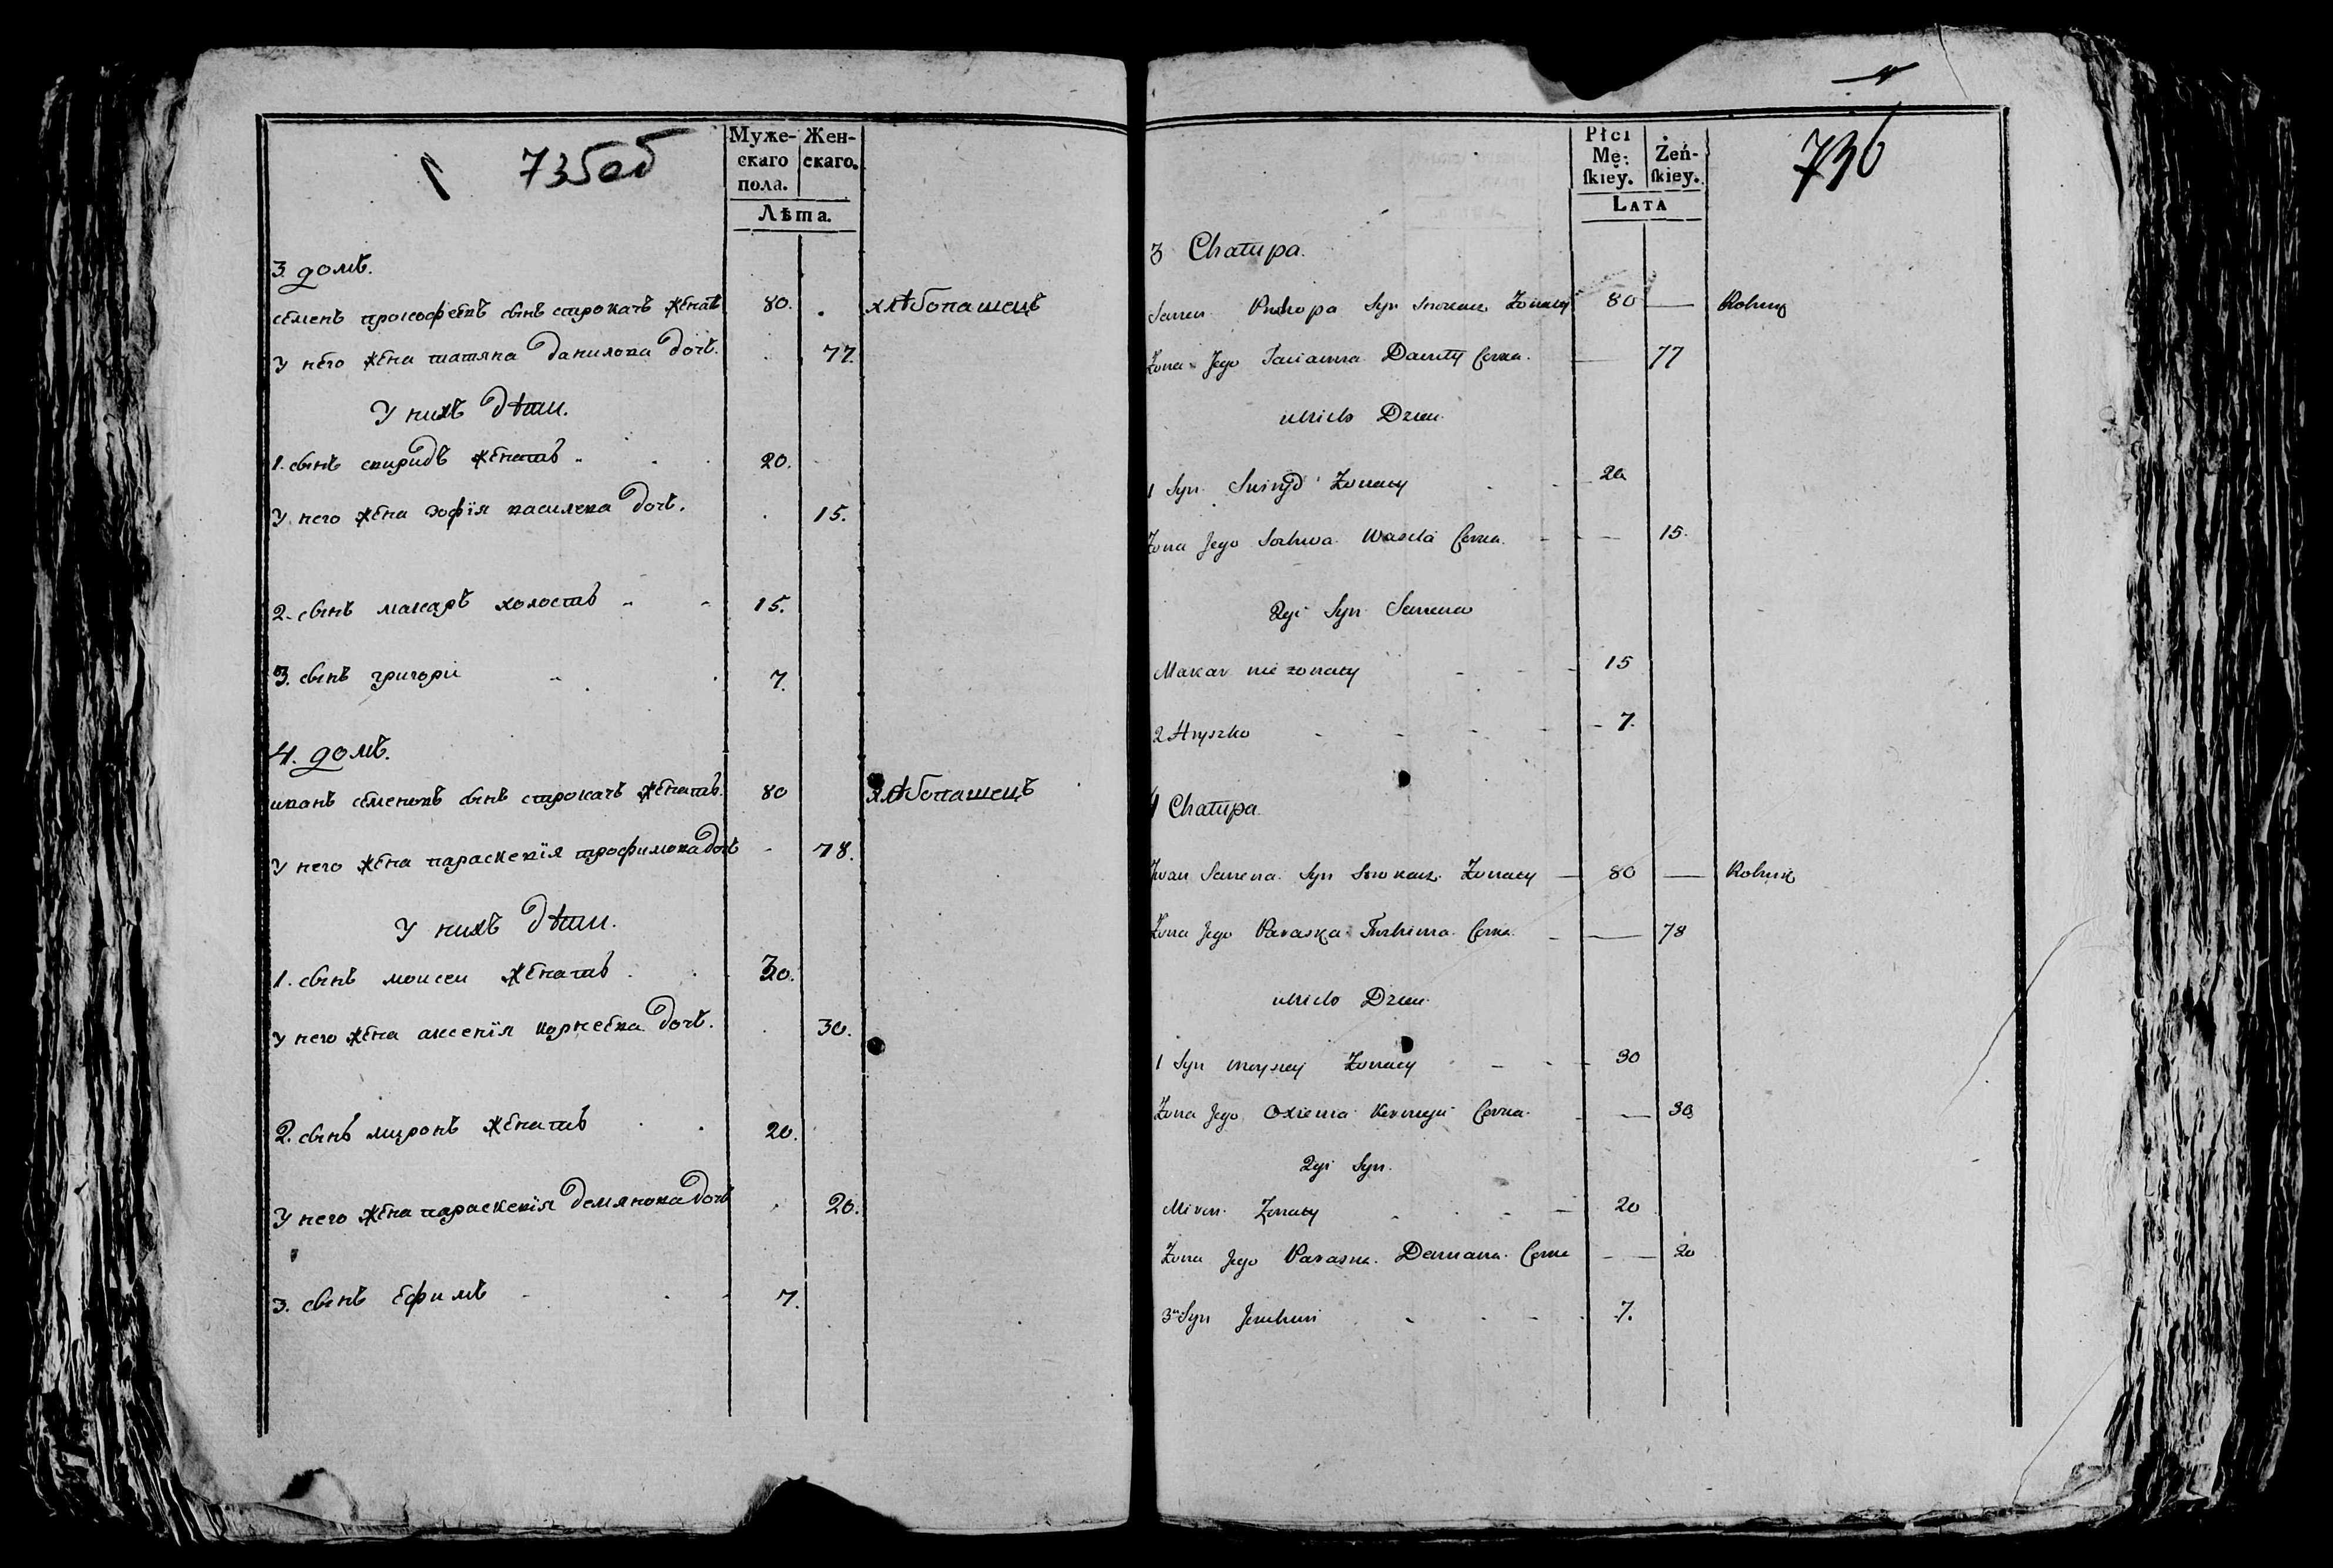 735об
Муже-
скаго
пола.
Жен-
скаго.
Лѣта.
3 домъ.
семенъ прокофѣевъ сынъ строкачъ женатъ 80. хлѣбопашецъ
у него жена татяна данилова дочь. 77.
У нихъ дѣти.
1. сынъ спиридъ женатъ 20.
у него жена софія василева дочь. 15.
2. сынъ макаръ холостъ 15.
3. сынъ григори 7.
4. домъ.
иванъ семеновъ сынъ строкачъ женатъ. 80 хлѣбопашецъ
у него жена параскевія трофимова дочь 78.
У нихъ дѣти.
1. сынъ моисеи женатъ 30.
у него жена аксенія корнеева дочь. 30.
2. сынъ миронъ женатъ 20.
у него жена параскевія демянова дочь 20.
3. сынъ ефимъ 7.
736
Płci
Mę-
skiey.
Żeń-
skiey.
LATA
3 Chałupa.
Semen Prokopa Syn Strokacz Żonaty 80 — Rolnik
Żona Jego Tacianna Daniły Corka. — 77
u nich Dzieci
1 Syn Swiryd Żonaty 20
Żona Jego Sochwia Wasila Corka. — 15.
2gi Syn Semena
Makar nie żonaty 15
2 Hryszko 7.
4 Chałupa
Iwan Semena Syn Strokacz Żonaty 80 — Rolnik
Żona Jego Paraska Trochima Corka. — 78
u nich Dzieci
1 Syn Moysiey Żonaty 30
Żona Jego Oxienia Korneja Corka. — 30
2gi Syn.
Miron Żonaty 20
Żona Jego Paraska Demiana Corka — 20
3ci Syn Jeuchim 7.